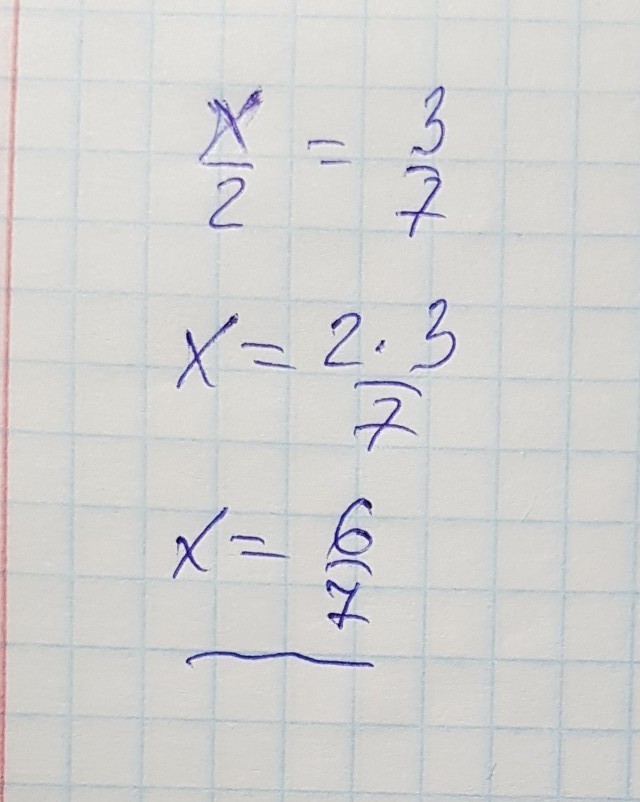 x/2 = 3/7
x = 2·3/7
x = 6/7